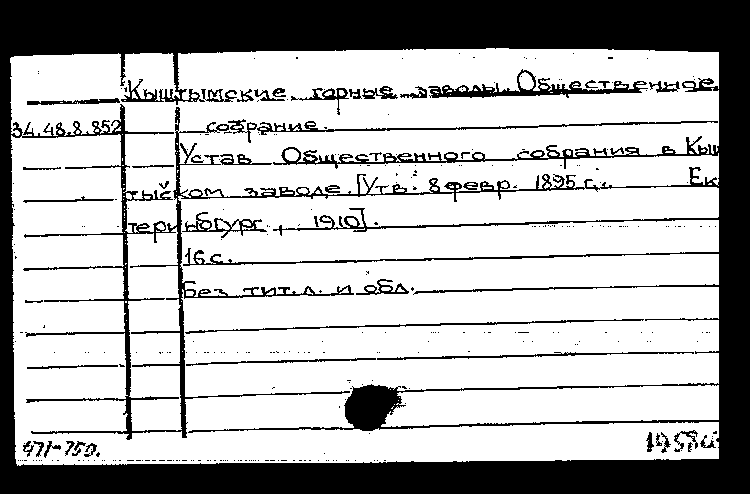 Кыштымские горные заводы. Общественное
34.48.8.852 собрание.
Устав Общественного собрания в Кыш
тымском заводе. [Утв. 8 февр. 1895 г.. Ека
теринбург, 1910].
16 с.
Без тит. л. и обл.
471-750. 1958